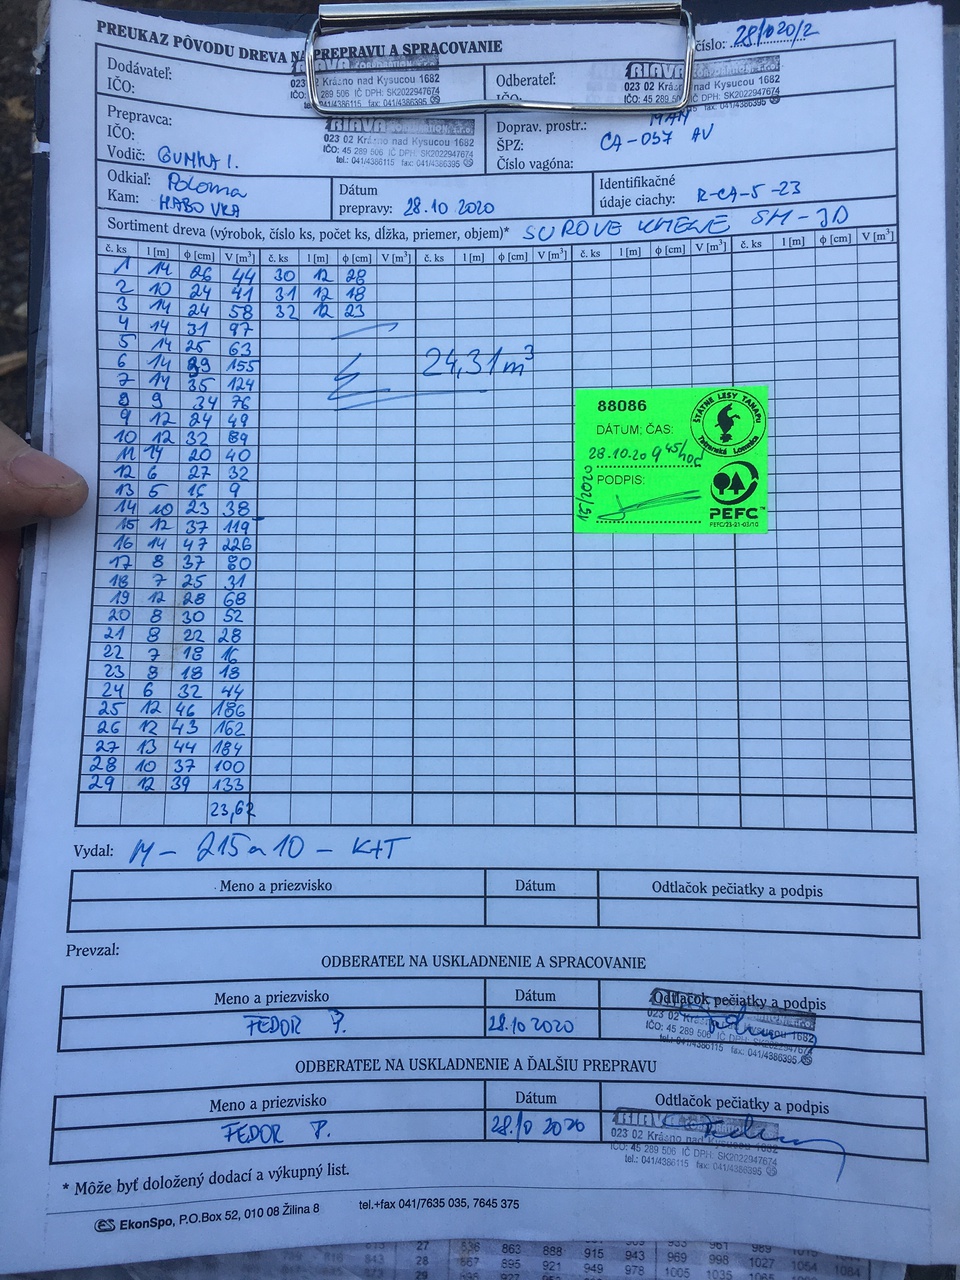 PREUKAZ PÔVODU DREVA NA PREPRAVU A SPRACOVANIE
číslo: 28/020/2
Dodávateľ:
IČO:
RIAVA CORPORATION, s.r.o.
023 02 Krásno nad Kysucou 1682
289 506 IČ DPH: SK2022947674
041/4386115 fax: 041/4386395
Odberateľ:
IČO:
RIAVA CORPORATION, s.r.o.
023 02 Krásno nad Kysucou 1682
IČO: 45 289 506 IČ DPH: SK2022947674
fax: 041/4386395
Prepravca:
IČO:
Vodič: GUMKA I.
RIAVA CORPORATION, s.r.o.
023 02 Krásno nad Kysucou 1682
IČO: 45 289 506 IČ DPH: SK2022947674
tel.: 041/4386115 fax: 041/4386395
Doprav. prostr.: MAN
ŠPZ: CA-057 AV
Číslo vagóna:
Odkiaľ: Poloma
Kam: HABOVKA
Dátum
prepravy: 28.10 2020
Identifikačné
údaje ciachy: R-CA-5-23
Sortiment dreva (výrobok, číslo ks, počet ks, dĺžka, priemer, objem)* SUROVE KMENE SM-JD
č. ks l [m] ϕ [cm] V [m³] č. ks l [m] ϕ [cm] V [m³] č. ks l [m] ϕ [cm] V [m³] č. ks l [m] ϕ [cm] V [m³] č. ks l [m] ϕ [cm] V [m³]
1 14 26 44 30 12 28
2 10 24 41 31 12 18
3 14 24 58 32 12 23
4 14 31 97
5 14 25 63
6 14 39 155
7 14 35 124
8 9 34 76
9 12 24 49
10 12 32 89
11 14 20 40
12 6 27 32
13 5 16 9
14 10 23 38
15 12 37 119
16 14 47 226
17 8 37 80
18 7 25 31
19 12 28 68
20 8 30 52
21 8 22 28
22 7 18 16
23 8 18 18
24 6 32 44
25 12 46 186
26 12 43 162
27 13 44 184
28 10 37 100
29 12 39 133
23,62
24,31 m³
88086
DÁTUM; ČAS:
28.10.20 9 45/hod
PODPIS:
15/2020
ŠTÁTNE LESY TANAPu
Tatranská Lomnica
PEFC™
PEFC/23-21-03/10
Vydal: M - 215a10 - K+T
Meno a priezvisko Dátum Odtlačok pečiatky a podpis
Prevzal:
ODBERATEĽ NA USKLADNENIE A SPRACOVANIE
Meno a priezvisko Dátum Odtlačok pečiatky a podpis
FEDOR P. 28.10 2020
023 02 Krásno nad Kysucou 1682
IČO: 45 289 506 IČ DPH: SK2022947674
tel.: 041/4386115 fax: 041/4386395
ODBERATEĽ NA USKLADNENIE A ĎALŠIU PREPRAVU
Meno a priezvisko Dátum Odtlačok pečiatky a podpis
FEDOR P. 28.10 2020
RIAVA
023 02 Krásno nad Kysucou 1682
IČO: 45 289 506 IČ DPH: SK2022947674
tel.: 041/4386115 fax: 041/4386395
* Môže byť doložený dodací a výkupný list.
ES EkonSpo, P.O.Box 52, 010 08 Žilina 8 tel.+fax 041/7635 035, 7645 375
27 836 863 888 915 943 969
28 867 895 921 949 978 1005 1035
29